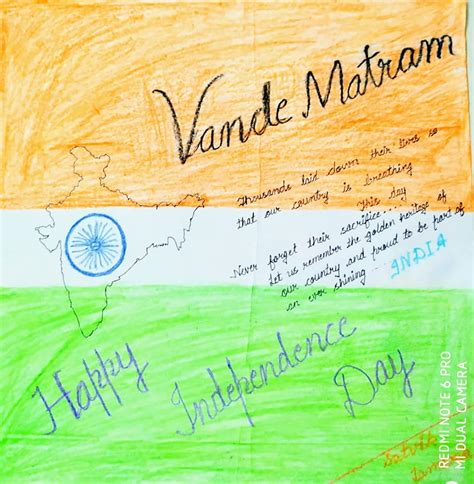 Vande Matram
Thousands laid down their lives so
that our country is breathing
This day
Never forget their sacrifice....
Let us remember the golden heritage of
our country and proud to be part of
an ever shining INDIA
Happy Independence Day
Satvik
REDMI NOTE 6 PRO
MI DUAL CAMERA